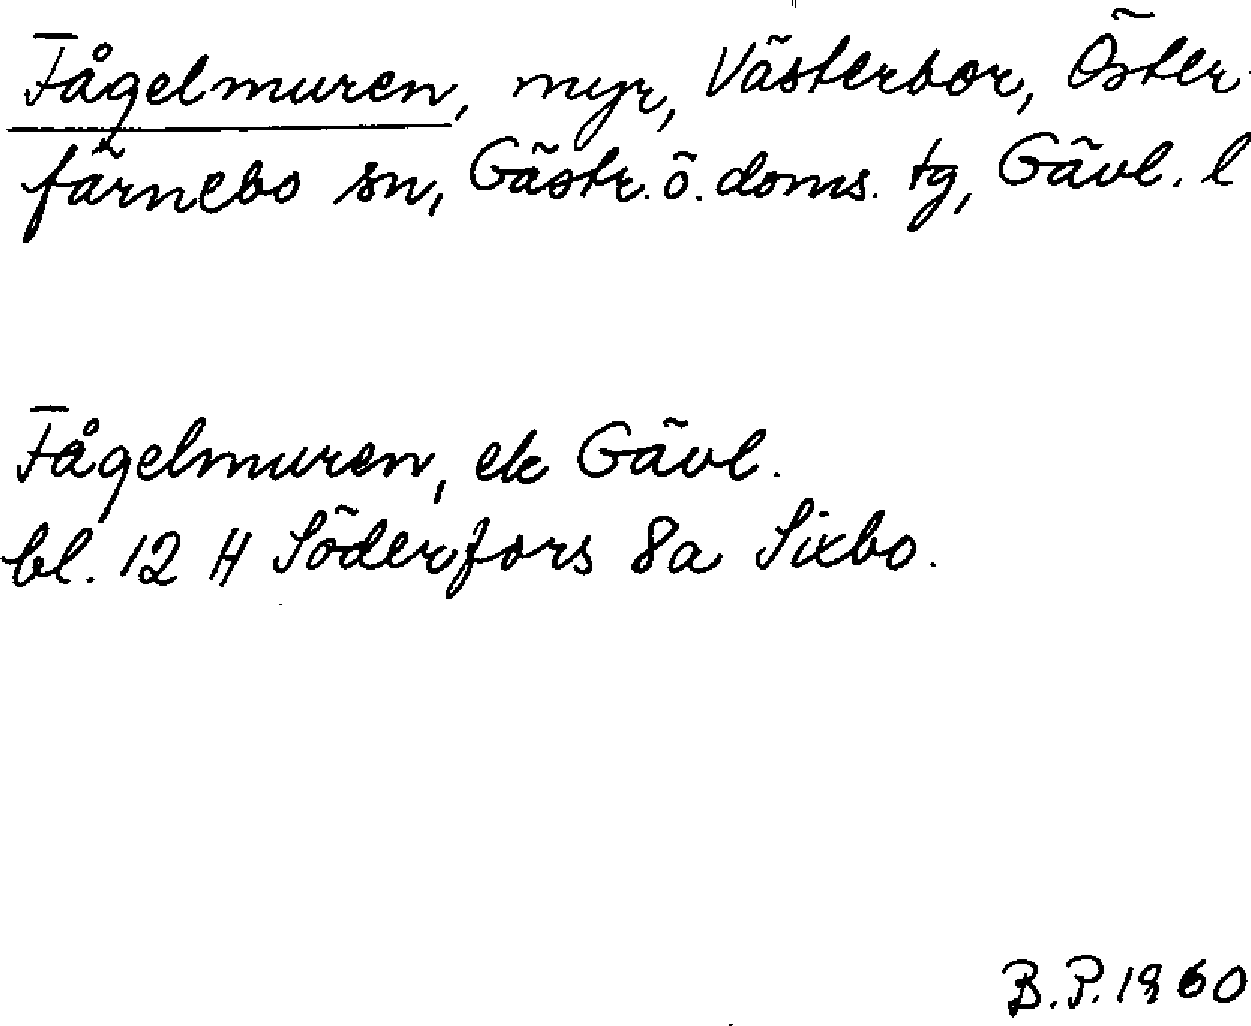 Fågelmuren, myr, Västerbor, Öster-
färnebo sn, Gästr. ö. doms. tg, Gävl. l
Fågelmuren, ek Gävl.
bl. 12 H Söderfors 8a Sixbo.
B.P. 1960